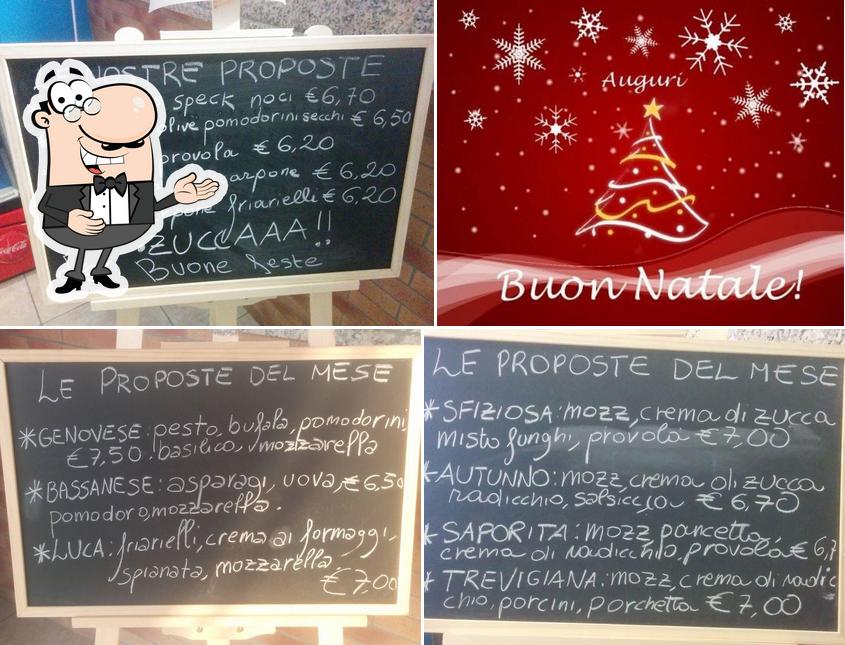 NOSTRE PROPOSTE
speck noci € 6,70
olive pomodorini secchi € 6,50
provola € 6,20
arpone € 6,20
friarielli € 6,20
ZUCCAAA!!
Buone feste
Coca-Cola
Auguri
Buon Natale!
LE PROPOSTE DEL MESE
*GENOVESE: pesto, bufala, pomodorini,
€7,50 basilico, mozzarella
*BASSANESE: asparagi, uova, €6,50
pomodoro, mozzarella.
*LUCA: friarielli, crema ai formaggi,
spianata, mozzarella.
€7,00
LE PROPOSTE DEL MESE
*SFIZIOSA: mozz, crema di zucca
misto funghi, provola €7,00
*AUTUNNO: mozz, crema di zucca
radicchio, salsiccia €6,70
*SAPORITA: mozz, pancetta,
crema di radicchio, provola € 6,7
*TREVIGIANA: mozz, crema di radic
chio, porcini, porchetta €7,00